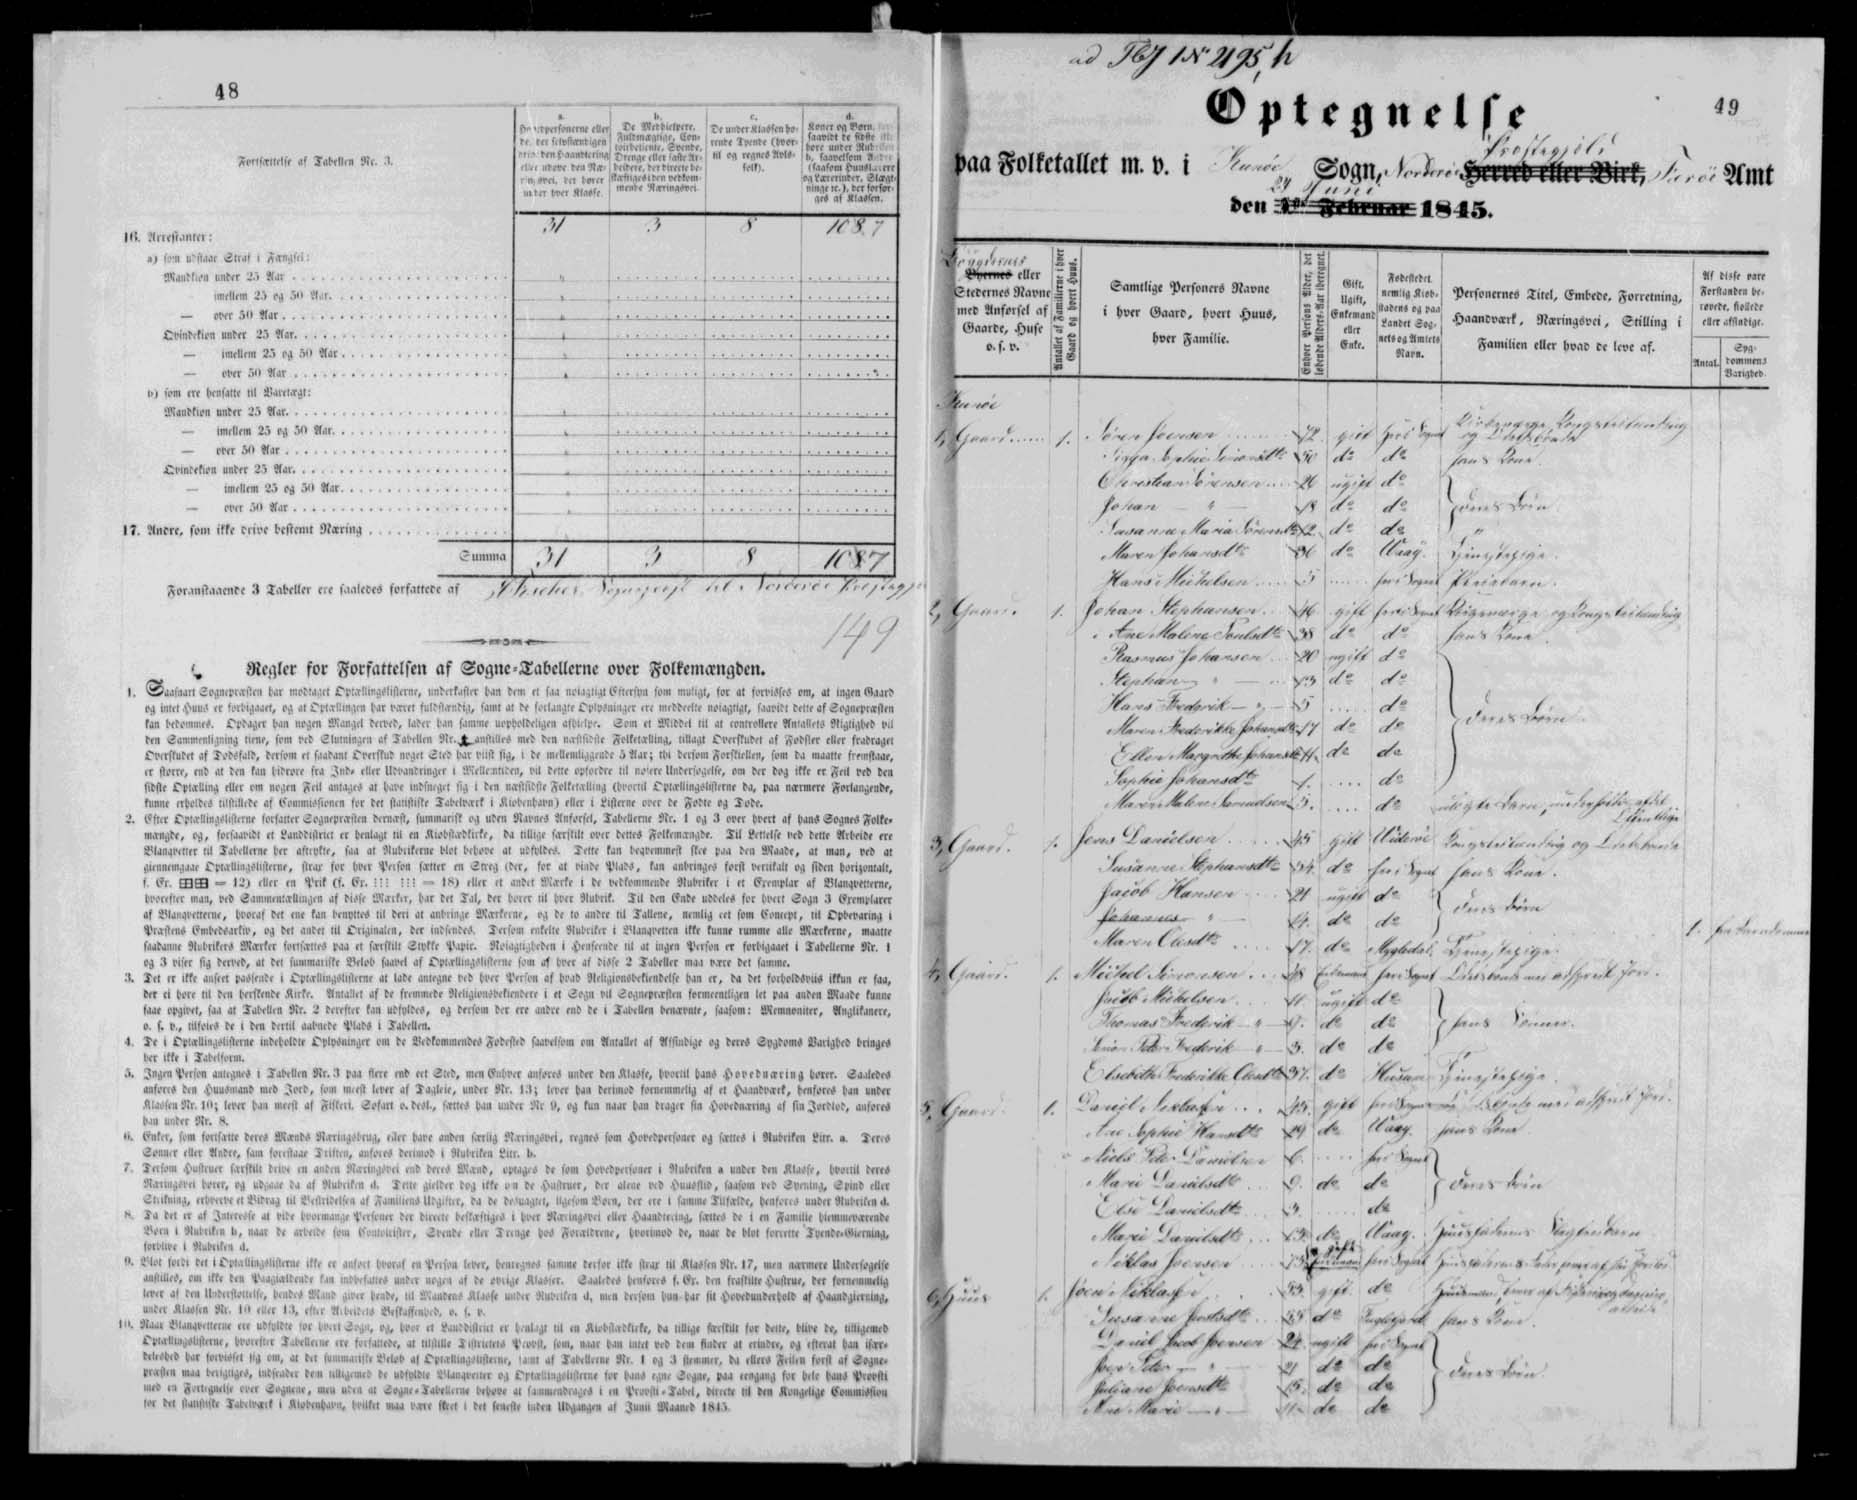 48
Fortsættelse af Tabellen Nr. 3.
a.
Hovedpersonerne eller
de, der selvstændigen
drive den Haandtering
eller udøve den Næ-
ringsvei, der hører
under hver Klasse.
b.
De Medhielpere,
Fuldmægtige, Con-
toirbetiente, Svende,
Drenge eller faste Ar-
beidere, der directe be-
skæftiges i den vedkom-
mende Næringsvei.
c.
De under Klassen hø-
rende Tyende (hvor-
til og regnes Avls-
folk).
d.
Koner og Børn,
saavidt de sidste ikke
høre under Rubriken
b, saavelsom Andre
(saasom Huuslærere
og Lærerinder, Slægt-
ninge 2c.), der forsør-
ges af Klassen.
31 3 8 1087
16. Arrestanter:
a) som udstaae Straf i Fængsel:
Mandkiøn under 25 Aar
— imellem 25 og 50 Aar
— over 50 Aar
Qvindekiøn under 25 Aar
— imellem 25 og 50 Aar
— over 50 Aar
b) som ere hensatte til Varetægt:
Mandkiøn under 25 Aar
— imellem 25 og 50 Aar
— over 50 Aar
Qvindekiøn under 25 Aar
— imellem 25 og 50 Aar
— over 50 Aar
17. Andre, som ikke drive bestemt Næring
Summa 31 3 8 1087
Foranstaaende 3 Tabeller ere saaledes forfattede af
149
Regler for Forfattelsen af Sogne-Tabellerne over Folkemængden.
1. Saasnart Sognepræsten har modtaget Optællingslisterne, underkaster han dem et saa nøiagtigt Eftersyn som muligt, for at forvisses om, at ingen Gaard
og intet Huus er forbigaaet, og at Optællingen har været fuldstændig, samt at de forlangte Oplysninger ere meddeelte nøiagtigt, saavidt dette af Sognepræsten
kan bedømmes. Opdager han nogen Mangel derved, lader han samme uopholdeligen afhielpe. Som et Middel til at controllere Antallets Rigtighed vil
den Sammenligning tiene, som ved Slutningen af Tabellen Nr. anstilles med den næstsidste Folketælling, tillagt Overskudet af Fødsler eller fradraget
Overskudet af Dødsfald, dersom et saadant Overskud noget Sted har viist sig, i de mellemliggende 5 Aar; thi dersom Forskiellen, som da maatte fremstaae,
er større, end at den kan hidrøre fra Ind- eller Udvandringer i Mellemtiden, vil dette opfordre til nøiere Undersøgelse, om der dog ikke er Feil ved den
sidste Optælling eller om nogen Feil antages at have indsneget sig i den næstsidste Folketælling (hvortil Optællingslisterne da, paa nærmere Forlangende,
kunne erholdes tilstillede af Commissionen for det statistiske Tabelværk i Kiøbenhavn) eller i Listerne over de Fødte og Døde.
2. Efter Optællingslisterne forfatter Sognepræsten dernæst, summarisk og uden Navnes Anførsel, Tabellerne Nr. 1 og 3 over hvert af hans Sognes Folke-
mængde, og, forsaavidt et Landdistrict er henlagt til en Kiøbstædkirke, da tillige særskilt over dettes Folkemængde. Til Lettelse ved dette Arbeide ere
Blanqvetter til Tabellerne her aftrykte, saa at Rubrikerne blot behøve at udfyldes. Dette kan beqvemmest skee paa den Maade, at man, ved at
giennemgaae Optællingslisterne, strax for hver Person sætter en Streg (der, for at vinde Plads, kan anbringes først vertikalt og siden horizontalt,
f. Ex. = 12) eller en Prik (f. Ex. = 18) eller et andet Mærke i de vedkommende Rubriker i et Exemplar af Blanqvetterne,
hvorefter man, ved Sammentællingen af disse Mærker, har det Tal, der hører til hver Rubrik. Til den Ende uddeles for hvert Sogn 3 Exemplarer
af Blanqvetterne, hvoraf det ene kan benyttes til deri at anbringe Mærkerne, og de to andre til Tallene, nemlig eet som Concept, til Opbevaring i
Præstens Embedsarkiv, og det andet til Originalen, der indsendes. Dersom enkelte Rubriker i Blanqvetten ikke kunne rumme alle Mærkerne, maatte
saadanne Rubrikers Mærker fortsættes paa et særskilt Stykke Papir. Nøiagtigheden i Henseende til at ingen Person er forbigaaet i Tabellerne Nr. 1
og 3 viser sig derved, at det summariske Beløb saavel af Optællingslisterne som af hver af disse 2 Tabeller maa være det samme.
3. Det er ikke anseet passende i Optællingslisterne at lade antegne ved hver Person af hvad Religionsbekiendelse han er, da det forholdsviis ikkun er faa,
der ei høre til den herskende Kirke. Antallet af de fremmede Religionsbekiendere i et Sogn vil Sognepræsten formeentligen let paa anden Maade kunne
faae opgivet, saa at Tabellen Nr. 2 derefter kan udfyldes, og dersom der ere andre end de i Tabellen benævnte, saasom: Memnoniter, Anglikanere,
o. s. v., tilføies de i den dertil aabnede Plads i Tabellen.
4. De i Optællingslisterne indeholdte Oplysninger om de Vedkommendes Fødested saavelsom om Antallet af Afsindige og deres Sygdoms Varighed bringes
her ikke i Tabelform.
5. Ingen Person antegnes i Tabellen Nr. 3 paa flere end eet Sted, men Enhver anføres under den Klasse, hvortil hans Hovednæring hører. Saaledes
anføres den Huusmand med Jord, som meest lever af Dagleie, under Nr. 13; lever han derimod fornemmelig af et Haandværk, henføres han under
Klassen Nr. 10; lever han meest af Fiskeri, Søfart o. desl., sættes han under Nr 9, og kun naar han drager sin Hovednæring af sin Jordlod, anføres
han under Nr. 8.
6. Enker, som fortsætte deres Mænds Næringsbrug, eller have anden særlig Næringsvei, regnes som Hovedpersoner og sættes i Rubriken Litr. a. Deres
Sønner eller Andre, som forestaae Driften, anføres derimod i Rubriken Litr. b.
7. Dersom Hustruer særskilt drive en anden Næringsvei end deres Mænd, optages de som Hovedpersoner i Rubriken a under den Klasse, hvortil deres
Næringsvei hører, og udgaae da af Rubriken d. Dette gielder dog ikke om de Hustruer, der alene ved Huusflid, saasom ved Syening, Spind eller
Strikning, erhverve et Bidrag til Bestridelsen af Familiens Udgifter, da de desuagtet, ligesom Børn, der ere i samme Tilfælde, henføres under Rubriken d.
8. Da det er af Interesse at vide hvormange Personer der directe beskæftiges i hver Næringsvei eller Haandtering, sættes de i en Familie hiemmeværende
Børn i Rubriken b, naar de arbeide som Contoirister, Svende eller Drenge hos Forældrene, hvorimod de, naar de blot forrette Tyende-Gierning,
forblive i Rubriken d.
9. Blot fordi det i Optællingslisterne ikke er anført hvoraf en Person lever, henregnes samme derfor ikke strax til Klassen Nr. 17, men nærmere Undersøgelse
anstilles, om ikke den Paagieldende kan indbefattes under nogen af de øvrige Klasser. Saaledes henføres f. Ex. den fraskilte Hustrue, der fornemmelig
lever af den Understøttelse, hendes Mand giver hende, til Mandens Klasse under Rubriken d, men dersom hun har sit Hovedunderhold af Haandgierning,
under Klassen Nr. 10 eller 13, efter Arbeidets Beskaffenhed, o. s. v.
10. Naar Blanqvetterne ere udfyldte for hvert Sogn, og, hvor et Landdistrict er henlagt til en Kiøbstædkirke, da tillige særskilt for dette, blive de, tilligemed
Optællingslisterne, hvorefter Tabellerne ere forfattede, at tilstille Districtets Provst, som, naar han intet ved dem finder at erindre, og efterat han især-
deleshed har forvisset sig om, at det summariske Beløb af Optællingslisterne, samt af Tabellerne Nr. 1 og 3 stemmer, da ellers Feilen først af Sogne-
præsten maa berigtiges, indsender dem tilligemed de udfyldte Blanqvetter og Optællingslisterne for hans egne Sogne, paa eengang for hele hans Provsti
med en Fortegnelse over Sognene, men uden at Sogne-Tabellerne behøve at sammendrages i en Provsti-Tabel, directe til den Kongelige Commission
for det statistiske Tabelværk i Kiøbenhavn, hvilket maa være skeet i det seneste inden Udgangen af Junii Maaned 1845.
49
Optegnelse
Præstegjeld
paa Folketallet m. v. i Kunöe Sogn, Norderöe Herred eller Birk, Færöe Amt
24 Juni
den 1ste Februar 1845.
Byernes eller
Stedernes Navne
med Anførsel af
Gaarde, Huse
o. s. v.
Antallet af Familierne i hver
Gaard og hvert Huus.
Samtlige Personers Navne
i hver Gaard, hvert Huus,
hver Familie.
Enhver Persons Alder, det
løbende Alders-Aar iberegnet.
Gift,
Ugift,
Enkemand
eller
Enke.
Fødestedet,
nemlig Kiøb-
stadens og paa
Landet Sog-
nets og Amtets
Navn.
Personernes Titel, Embede, Forretning,
Haandværk, Næringsvei, Stilling i
Familien eller hvad de leve af.
Af disse vare
Forstanden be-
røvede, fiollede
eller afsindige.
Antal.
Syg-
dommens
Varighed.
Kunöe
1, Gaard 1. Sören Joensen 72 gift her i Sognet
Sophie Simonsdtr 50 do do hans Kone.
Christian Sörensen 26 ugift do
Johan — " — 18 do do deres Börn
Susanne Maria Sörensdtr 12 do do "
Maren Johansdtr 36 do Waag. Tjenestepige.
Hans Michelsen 5 her i Sognet Pleiebarn.
2, Gaard. 1. Johan Stephansen 46 gift her i Sognet
Ane Malene Poulsdtr 38 do do hans Kone.
Rasmus Johansen 20 ugift do
Stephan — " — 13 do do
Hans Frederik — " — 5 do
Maren Frederikke Johansdtr 17 do do deres Börn.
Ellen Margrethe Johansdtr 11 do do
Sophie Johansdtr 1. do
Maren Malene Samuelsen 5. do
3, Gaard. 1. Jens Danielsen 45 gift Wideröe
Susanne Stephansdtr 54 do her i Sognet hans Kone.
Jacob Hansen 21 ugift do
Johannes — " — 14. do do deres Börn
Maren Olesdtr 17. do Mygledal. Tjenestepige. 1. fra Barndommen
4, Gaard. 1. Michel Simonsen 48 Enkemand her i Sognet
Jacob Michelsen 11. ugift do
Thomas Frederik — " — 9. do do hans Sönner.
Peter Frederik — " — 5. do do
Elsebeth Frederikke Olesdtr 37. do Husum Tjenestepige.
5, Gaard. 1. Daniel Niklasen 43. gift her i Sognet
Ane Sophie Hansdtr 29 do Waag. hans Kone.
Niels Peter Danielsen 6. her i Sognet
Marie Danielsdtr 9. do do deres Börn
Else Danielsdtr 3. do
Marie Danielsdtr 13. do Waag.
Niklas Joensen 73. her i Sognet
6, Huus 1. Joen Niklasen 53. gift do
Susanne Justsdtr 55 do Fuglefjord hans Kone.
Daniel Jacob Joensen 24. ugift her i Sognet
Joen Peter — " — 21 do do deres Börn.
Juliane Joensdtr 15. do do
Ane Marie — " — 11. do do